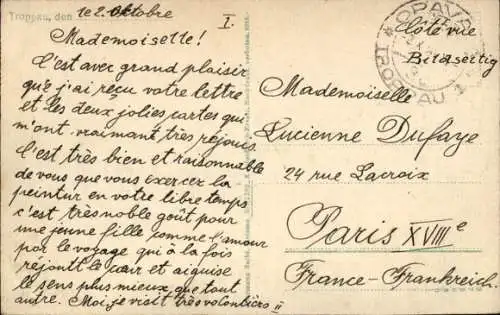 Troppau, den 1e 2. Oktobre
I.
Mademoiselle!
C'est avec grand plaisir
que j'ai reçu votre lettre
et les deux jolies cartes qui
m'ont vraimant très réjouis.
C'est très bien et raisonnable
de vous que vous exercez la
peintur en votre libre temps
c'est très noble goût pour
une jeune fille comme l'amour
par le voyage qui à la fois
réjouit le cœur et aiguise
le sens plus mieux que tout
autre. Moi je visit très volontiers
II
OPAVA
TROPPAU
Côté vue
Bildseitig
Mademoiselle
Lucienne Dufaye
24 rue Lacroix
Paris XVIIIe
France-Frankreich.